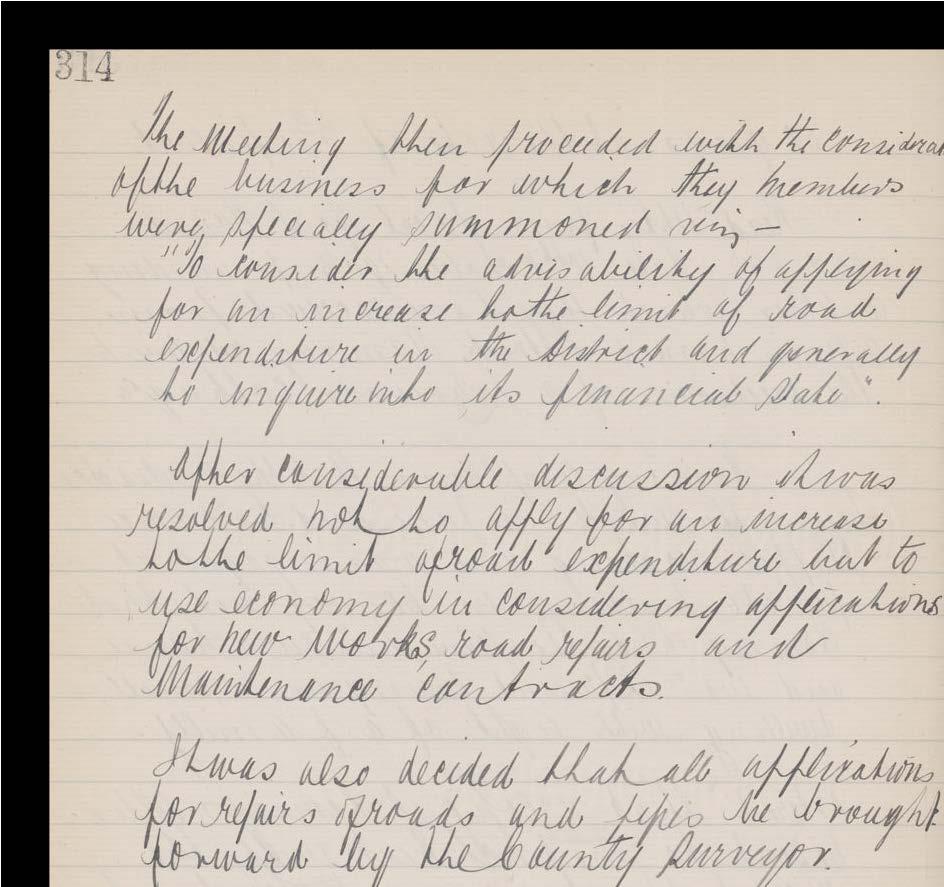 314
The Meeting then proceeded with the considerat
of the business for which they members
were specially summoned viz, —
"To consider the advisability of applying
for an increase to the limit of road
expenditure in the District and generally
to inquire into its financial state".
After considerable discussion it was
resolved not to apply for an increase
to the limit of road expenditure but to
use economy in considering applications
for new works, road repairs and
Maintenance contracts.
It was also decided that all applications
for repairs of roads and pipes be brought
forward by the County Surveyor.